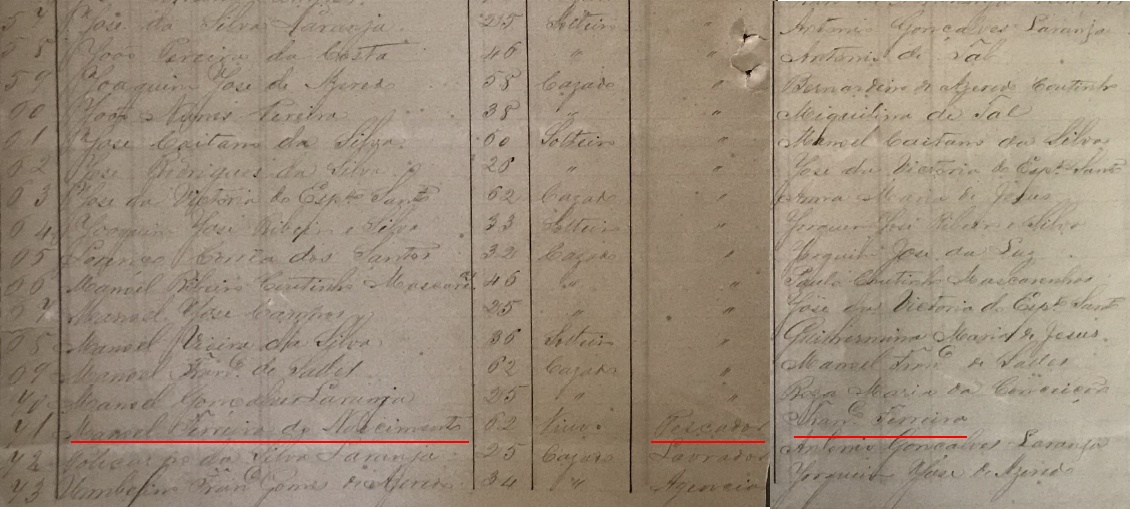 57 José da Silva Laranja 25 Solteiro " Antonio Gonçalves Laranja
58 João Pereira da Costa 46 " " Antonio de Tal
59 Joaquim José de Azeredo 58 Cazado " Bernardino de Azeredo Coutinho
60 João Nunes Pereira 38 " " Miquilina de Tal
61 José Caetano da Silva 60 Solteiro " Manoel Caetano da Silva
62 José Rodrigues da Silva 28 " " José da Victoria do Espto Santo
63 José da Victoria do Espto Santo 62 Cazado " Maria de Jesus
64 Joaquim José Ribeiro e Silva 33 Solteiro " Joaquim José Ribeiro e Silva
65 Lourenço Corrêa dos Santos 32 Cazado " José da Luz
66 Manoel Ribeiro Coutinho Mascaras 46 " " Paulo Coutinho Mascarenhas
67 Manoel José 25 " " José da Victoria do Espto Santo
68 Manoel Vieira da Silva 36 Solteiro " Guilhermina Maria de Jesus
69 Manoel Franco de Salles 62 Cazado " Manoel Franco de Salles
70 Manoel Gonçalves Laranja 25 " " Rosa Maria da Conceição
71 Manoel Ferreira do Nascimento 62 Viuvo Pescador Franco Ferreira
72 da Silva Laranja 25 Cazado Lavrador Antonio Gonçalves Laranja
73 Umbelino Franco Gomes de Azeredo 34 " Agencia Joaquim José de Azeredo